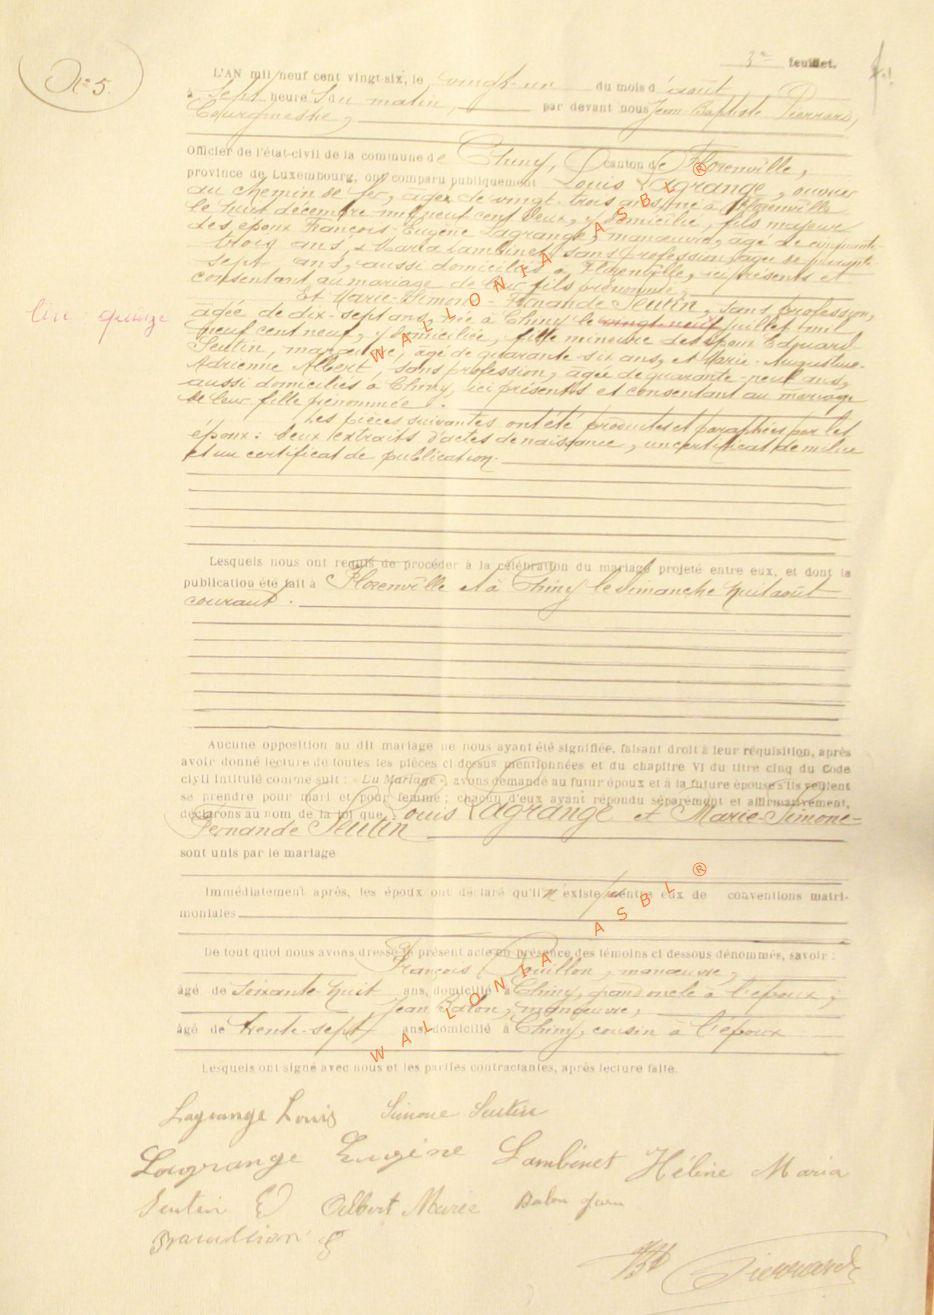 N° 5.
3me feuillet.
L'AN mil neuf cent vingt-six, le vingt-un du mois d'août
à sept heures du matin, par devant nous Jean Baptiste Pierrard,
Bourgmestre,
Officier de l'état-civil de la commune de Chiny, Canton de Florenville,
province de Luxembourg, ont comparu publiquement Louis Lagrange, ouvrier
au chemin de fer, âgé de vingt-trois ans, né à Florenville
le huit décembre mil neuf cent deux, y domicilié, fils majeur
des époux François-Eugène Lagrange, manœuvre, âgé de cinquante-
trois ans, & Maria Lambinet, sans profession, âgée de
sept ans, aussi domiciliés à Florenville, ici présents et
consentant au mariage de leur fils prénommé.
Et Marie-Simone-Fernande Seutin, sans profession,
âgée de dix-sept ans, née à Chiny le vingt-neuf juillet mil
lire: quinze
neuf cent neuf, y domiciliée, fille mineure des époux Edouard
Seutin, âgé de quarante-six ans, et Marie-Augustine-
Adrienne Albert, sans profession, âgée de quarante-neuf ans,
aussi domiciliés à Chiny, ici présents et consentant au mariage
de leur fille prénommée.
Les pièces suivantes ont été produites et paraphées par les
époux: deux extraits d'actes de naissance, un certificat de milice
et un certificat de publication.
Lesquels nous ont requis de procéder à la célébration du mariage projeté entre eux, et dont la
publication été fait à Florenville et à Chiny le dimanche huit août
courant.
Aucune opposition au dit mariage ne nous ayant été signifiée, faisant droit à leur réquisition, après
avoir donné lecture de toutes les pièces ci dessus mentionnées et du chapitre VI du titre cinq du Code
civil intitulé comme suit : « Du Mariage », avons demandé au futur époux et à la future épouse s'ils veulent
se prendre pour mari et pour femme ; chacun d'eux ayant répondu séparément et affirmativement,
déclarons au nom de la loi que Louis Lagrange et Marie-Simone-
Fernande Seutin
sont unis par le mariage
Immédiatement après, les époux ont déclaré qu'il n'existe pas entre eux de conventions matri-
moniales
De tout quoi nous avons dressé le présent acte en présence des témoins ci dessous dénommés, savoir :
François, manœuvre,
âgé de soixante-huit ans, domicilié à Chiny, grand oncle à l'époux,
Jean Balon, manœuvre,
âgé de trente-sept ans, domicilié à Chiny, cousin à l'époux
Lesquels ont signé avec nous et les parties contractantes, après lecture faite.
Lagrange Louis Simone Seutin
Lagrange Eugène Lambinet Héline Maria
Seutin E Albert Marie Balon Jean
Pierrard
WALLONIA ASBL ®
WALLONIA ASBL ®